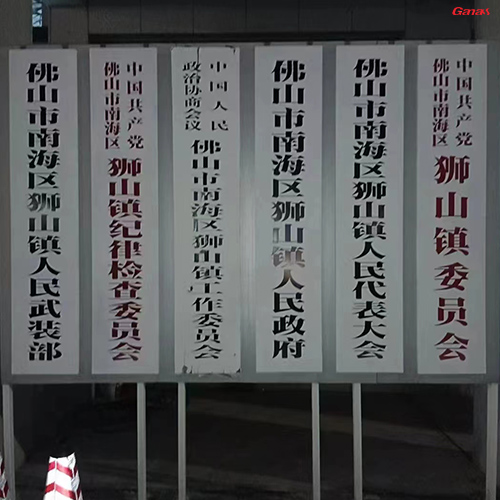 Ganas
佛山市南海区狮山镇人民武装部
中国共产党
佛山市南海区
狮山镇纪律检查委员会
中国人民
政治协商会议
佛山市南海区狮山镇工作委员会
佛山市南海区狮山镇人民政府
佛山市南海区狮山镇人民代表大会
中国共产党
佛山市南海区
狮山镇委员会